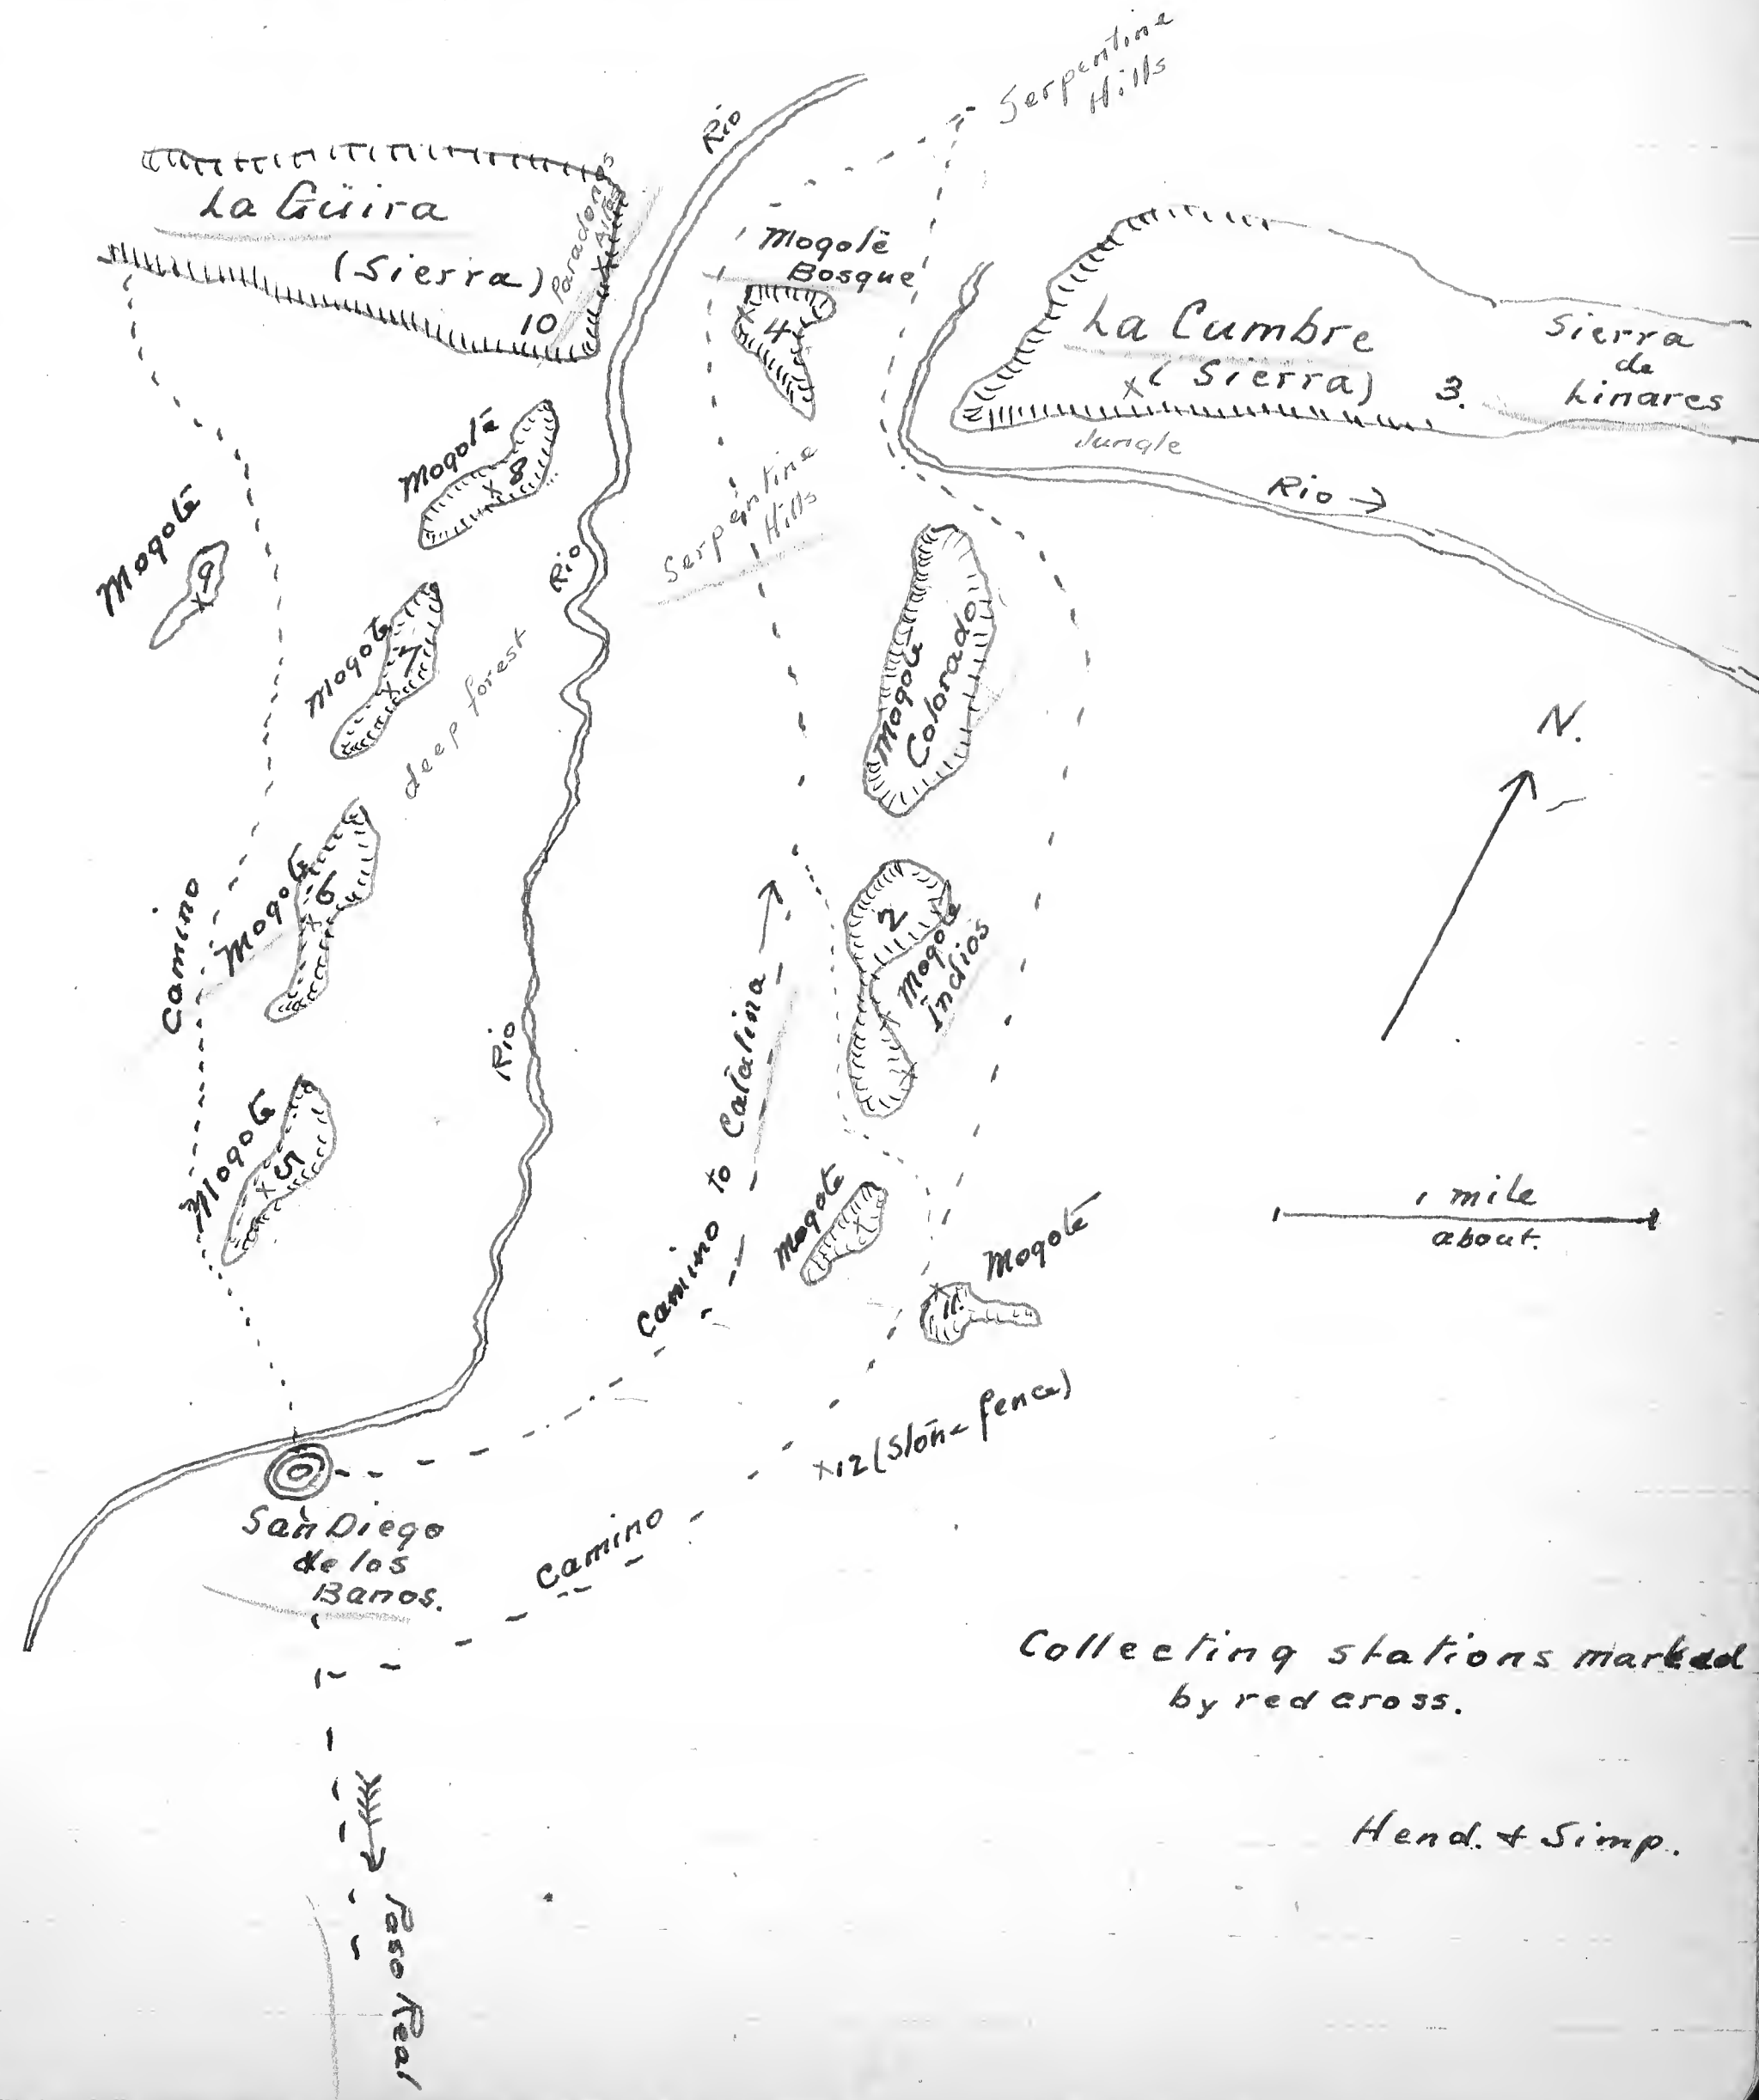 Serpentine
Hills
Rio
La Güira
(Sierra)
10
Paradones
Mogoté
Bosque
4
La Cumbre
x (Sierra)
3.
Sierra
de
Linares
Jungle
Rio →
Mogoté
x 8
Mogoté
9
x
Serpentine
Hills
Rio
Mogoté
7
x
deep forest
Mogoté
Colorado
N.
Camino
Mogoté
6
x
2
Mogoté
Indios
Camino to Catalina →
Rio
Mogoté
x 5
Mogoté
x
1 mile
about.
Mogoté
x
11.
x12 (Stone fence)
San Diego
de los
Banos.
Camino
Collecting stations marked
by red cross.
Hend. + Simp.
Paso Real